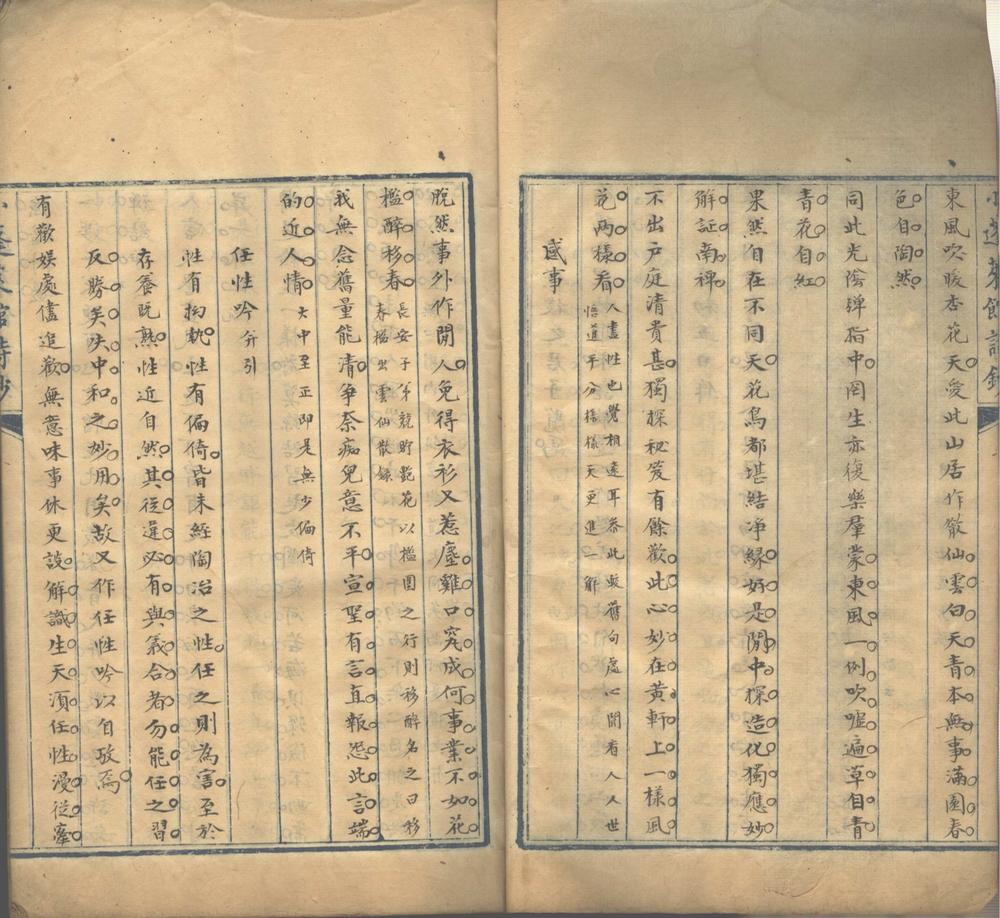 東風吹暖杏花天愛此山居作散仙雲白天青本無事滿園春
色自陶然
同此光陰彈指中罔生亦復樂羣蒙東風一例吹噓遍草自青
青花自紅
果然自在不同天花鳥都堪結淨緣好是閒中探造化獨應妙
解証南禪
不出戶庭清貴甚獨探秘笈有餘歡此心妙在黃軒上一樣風
花兩樣看人盡性也覺相遠耳吞此蛟舊句處心閒看人人世
悟道平分樣樣天更進一解
感事
脫然事外作閒人免得衣衫又惹塵雞口究成何事業不如花
檻醉移春長安子弟競貯艷花以檻圍之行則移醉名之曰移
春檻出雲仙散錄
我無念舊量能清爭奈痴兒意不平宣聖有言直報怨此言端
的近人情大中至正即是無少偏倚
任性吟分引
性有拘執性有偏倚皆未經陶冶之性任之則為害至於
存養既熟性近自然其從違必有與義合者勿能任之習
反勝矣失中和之妙用矣故又作任性吟以自攷焉
有歡娛處儘追歡無意味事休更說解識生天須任性漫從塵